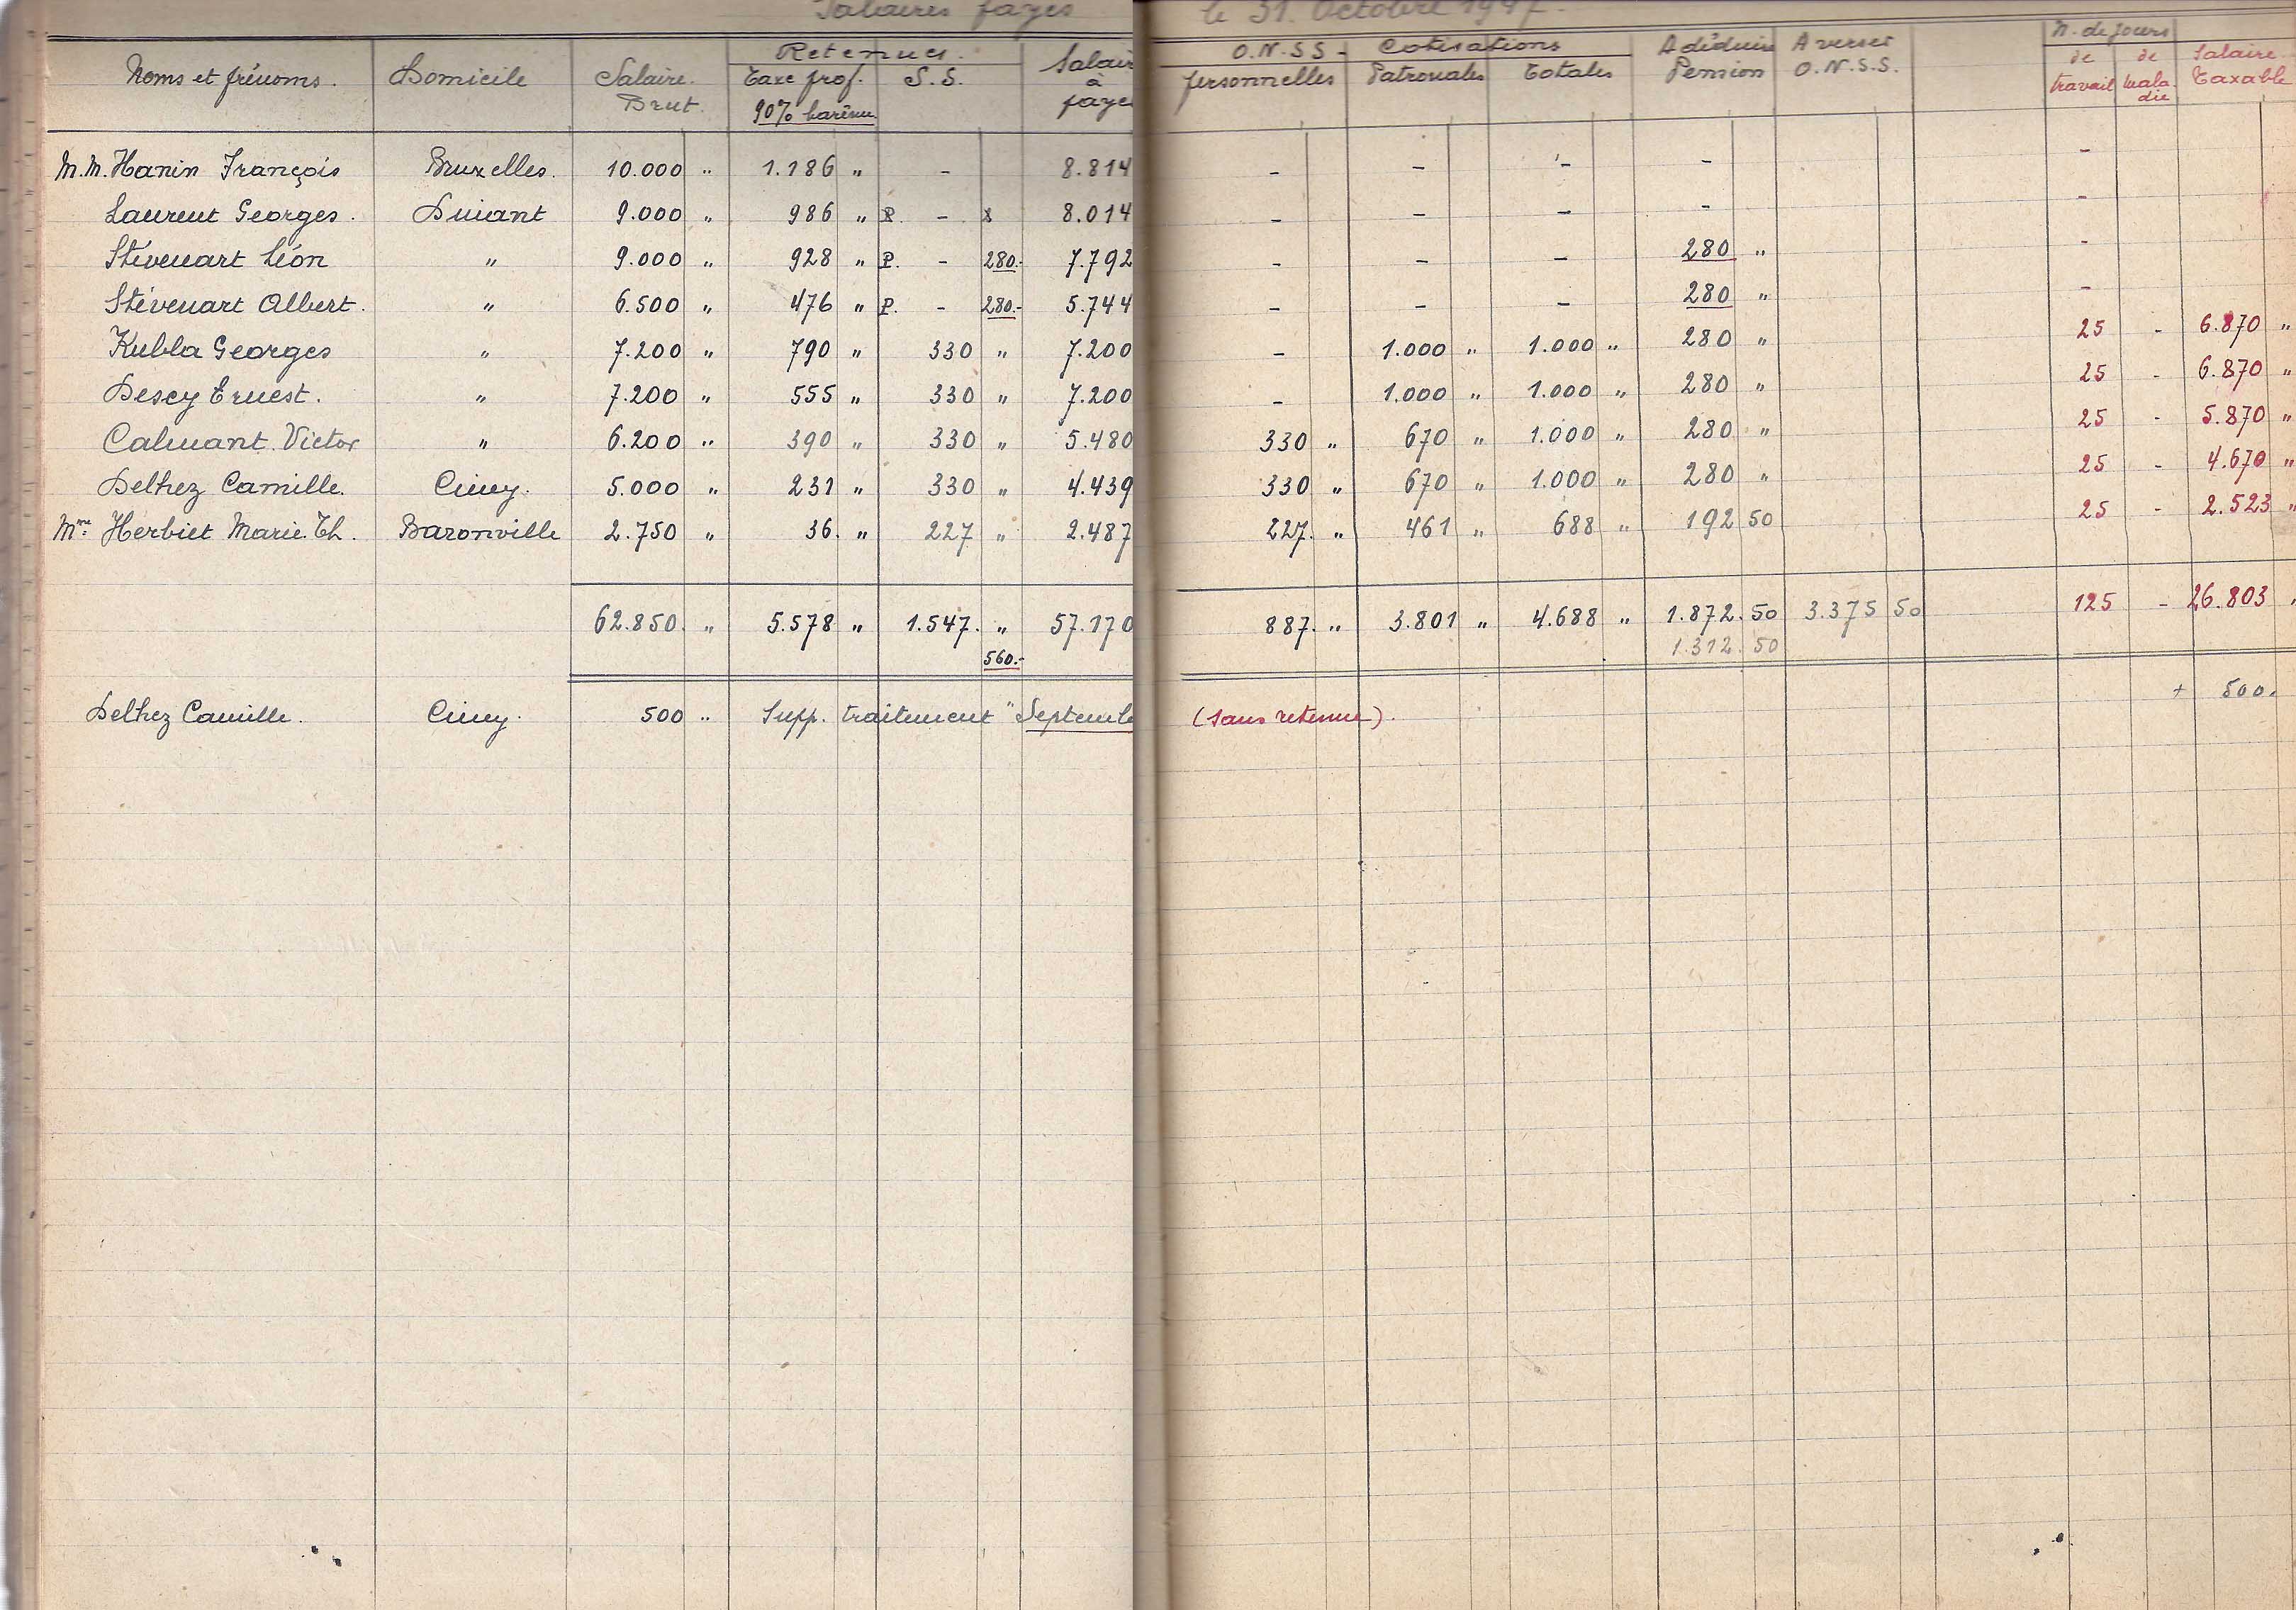 Salaires payés le 31. Octobre 1947.
Noms et prénoms. Domicile Salaire Brut. Retenues. Taxe prof. 90% barême S.S. Salaire à payer O.N.S.S. personnelles Cotisations Patronales Totales A déduire Pension A verser O.N.S.S. N. de jours de travail de maladie Salaire Taxable
M.M. Hanin François Bruxelles. 10.000 " 1.186 " - 8.814 - - - - -
Laurent Georges. Dinant 9.000 " 986 " P. - 8.014 - - - - -
Stévenart Léon " 9.000 " 928 " P. - 280.- 7.792 - - - 280 " -
Stévenart Albert. " 6.500 " 476 " P. - 280.- 5.744 - - - 280 " -
Kubla Georges " 7.200 " 790 " 330 " 7.200 - 1.000 " 1.000 " 280 " 25 - 6.870 "
Descy Ernest. " 7.200 " 555 " 330 " 7.200 - 1.000 " 1.000 " 280 " 25 - 6.870 "
Calmant. Victor " 6.200 " 390 " 330 " 5.480 330 " 670 " 1.000 " 280 " 25 - 5.870 "
Delhez Camille. Ciney. 5.000 " 231 " 330 " 4.439 330 " 670 " 1.000 " 280 " 25 - 4.670 "
Mme Herbiet Marie.Th. Baronville 2.750 " 36. " 227 " 2.487 227. " 461 " 688 " 192 50 25 - 2.523 "
62.850. " 5.578 " 1.547. " 57.170 887. " 3.801 " 4.688 " 1.872.50 3.375 50 125 - 26.803 "
560.- 1.312.50
+ 500.
Delhez Camille. Ciney. 500 " Supp. traitement "Septemb (sans retenue).